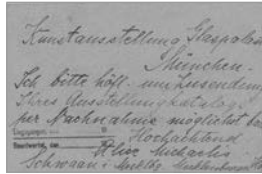 Kunstausstellung Glaspalast
München.
Ich bitte höfl. um Zusendung
Ihres Ausstellungskatalogs
per Nachnahme möglichst
Hochachtend
Alice Michaelis
Schwaan i. Mecklbg.